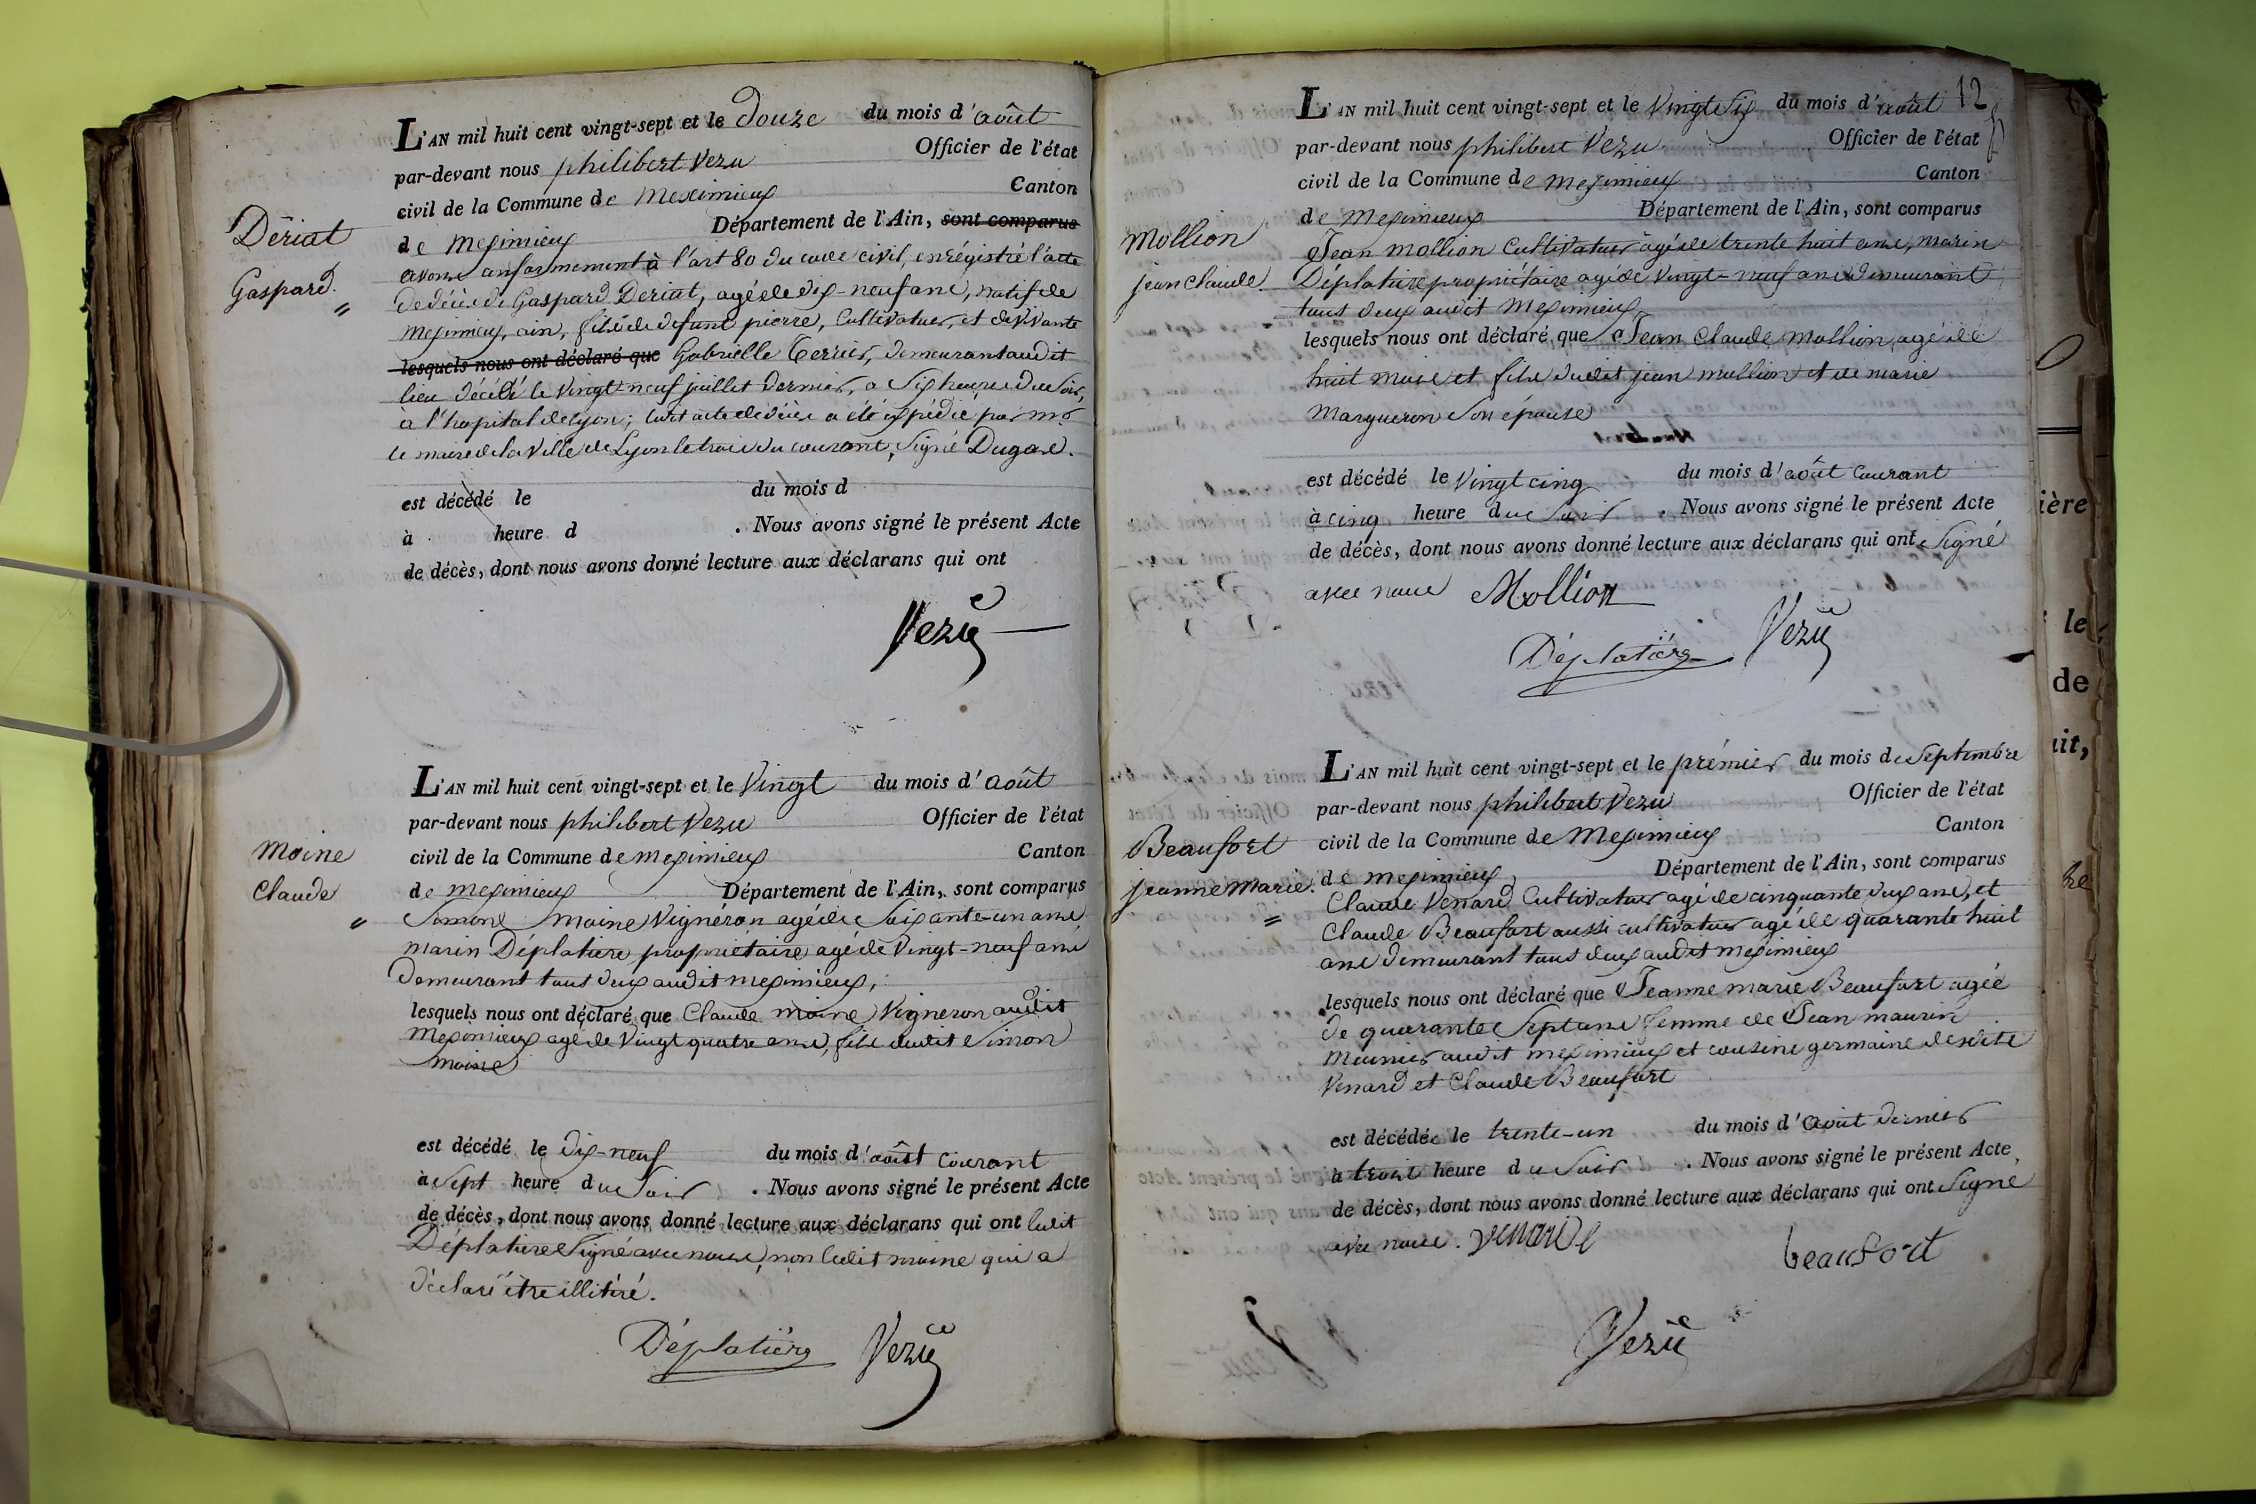 Dériat
Gaspard.
L'AN mil huit cent vingt-sept et le douze du mois d'août
par-devant nous philibert Vezu Officier de l'état
civil de la Commune de Meximieux Canton
de Meximieux Département de l'Ain, sont comparus
avons conformément à l'art 80 du code civil, enrégistré l'acte
de décès de Gaspard Dériat, agé de dix-neuf ans, natif de
Meximieux, ain, fils de défunt pierre, Cultivateur, et de vivante
lesquels nous ont déclaré que Gabrielle Terrier, demeurant audit
lieu décédé le vingt-neuf juillet dernier, a six heures du soir,
à l'hopital de Lyon; ledit acte de décès a été expédié par mr
le maire de la Ville de Lyon le trois du courant, Signé Dugas.
est décédé le du mois d
à heure d . Nous avons signé le présent Acte
de décès, dont nous avons donné lecture aux déclarans qui ont
Vezu
Moine
Claude
L'AN mil huit cent vingt-sept et le Vingt du mois d'août
par-devant nous philibert Vezu Officier de l'état
civil de la Commune de meximieux Canton
de meximieux Département de l'Ain, sont comparus
Simond Moine Vignéron agé de Soixante-un ans
marin Déplatière propriétaire agé de Vingt-neuf ans
Demeurant tous deux audit meximieux,
lesquels nous ont déclaré que Claude moine Vigneron audit
Meximieux agé de Vingt quatre ans, fils dudit Simon
moine
est décédé le dix-neuf du mois d'août courant
à Sept heure du Soir . Nous avons signé le présent Acte
de décès, dont nous avons donné lecture aux déclarans qui ont ledit
Déplatière Signé avec nous, non ledit moine qui a
déclaré être illitéré.
Déplatière Vezu
12
Mollion
jean Claude.
L'AN mil huit cent vingt-sept et le Vingt Six du mois d'août
par-devant nous philibert Vezu Officier de l'état
civil de la Commune de meximieux Canton
de Meximieux Département de l'Ain, sont comparus
Jean Mollion Cultivateur agé de trente huit ans, Marin
Déplatière propriétaire agé de Vingt-neuf ans demeurant
tous deux audit Meximieux
lesquels nous ont déclaré que Jean Claude Mollion, agé de
huit mois et fils dudit jean mollion et de marie
Margueron Son épouse
est décédé le Vingt cinq du mois d'août Courant
à cinq heure du Soir . Nous avons signé le présent Acte
de décès, dont nous avons donné lecture aux déclarans qui ont Signé
avec nous Mollion
Déplatière Vezu
Beaufort
jeanne Marie.
L'AN mil huit cent vingt-sept et le prémier du mois de Septembre
par-devant nous philibert Vezu Officier de l'état
civil de la Commune de Meximieux Canton
de meximieux Département de l'Ain, sont comparus
Claude Venard Cultivateur agé de cinquante deux ans, et
Claude Beaufort aussi cultivateur agé de quarante huit
ans demeurant tous deux audit meximieux
lesquels nous ont déclaré que Jeanne marie Beaufort agée
de quarante Sept ans femme de Jean maurin
Meunier audit meximieux et cousine germaine desdits
Venard et Claude Beaufort
est décédée le trente-un du mois d'août dernier
à trois heure du Soir . Nous avons signé le présent Acte
de décès, dont nous avons donné lecture aux déclarans qui ont Signé
avec nous. venard beaufort
Vezu
ière
le
de
ait,